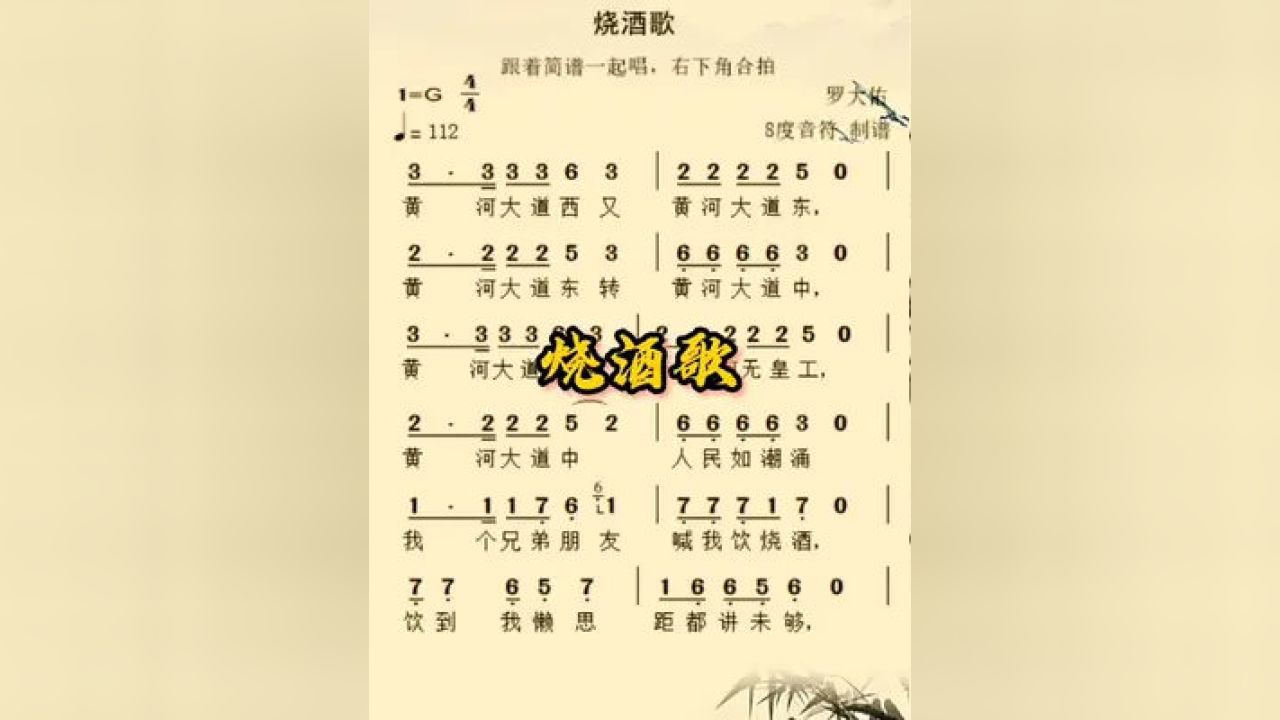 烧酒歌
跟着简谱一起唱，右下角合拍
1=G 4/4
罗大佑
♩= 112
S度音符 制谱
3 · 3 3 3 6 3 | 2 2 2 2 5 0 |
黄 河大道西又 黄河大道东，
2 · 2 2 2 5 3 | 6 6 6 6 3 0 |
黄 河大道东转 黄河大道中，
3 · 3 3 3 3 | 2 2 2 5 0 |
黄 河大道 无皇工，
烧酒歌
2 · 2 2 2 5 2 | 6 6 6 6 3 0 |
黄 河大道中 人民如潮涌
1 · 1 1 7 6 6 1 | 7 7 7 1 7 0 |
我 个兄弟朋友 喊我饮烧酒，
7 7 6 5 7 | 1 6 6 5 6 0 |
饮到 我懒思 距都讲未够，